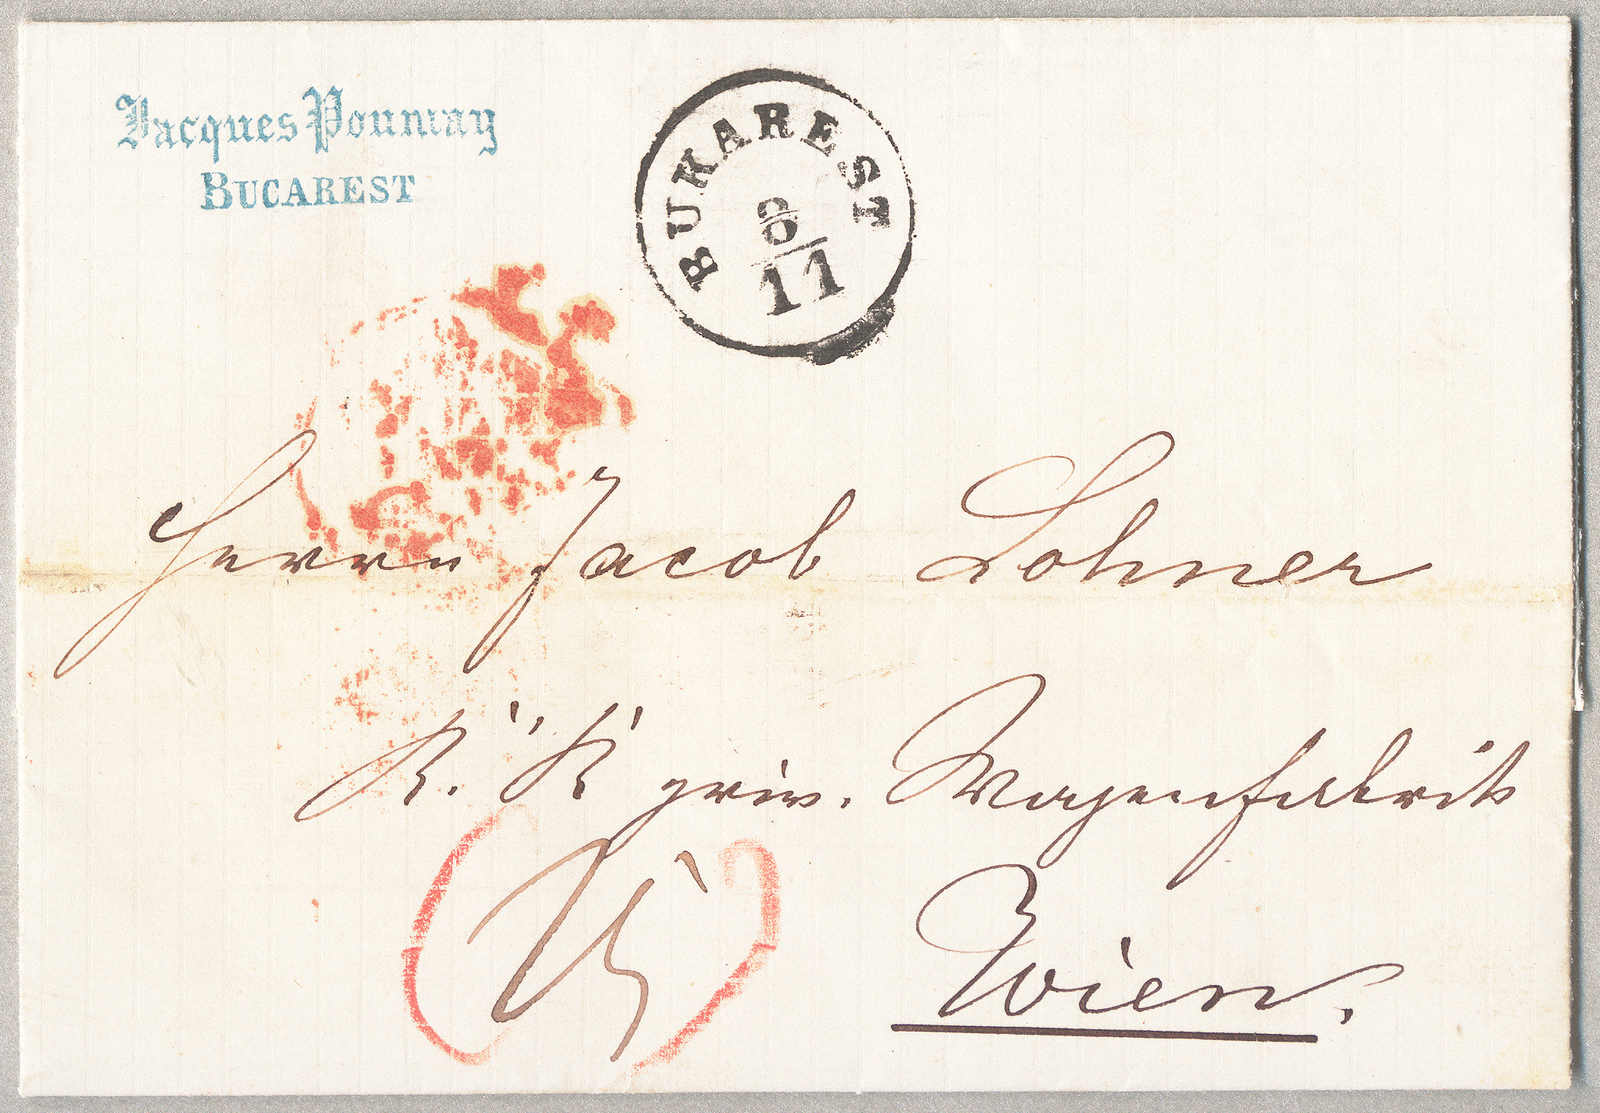 Jacques Poumay
BUCAREST
BUKAREST
8
11
Herrn Jacob Lohner
K. K. priv. Wagenfabrik
15
Wien.